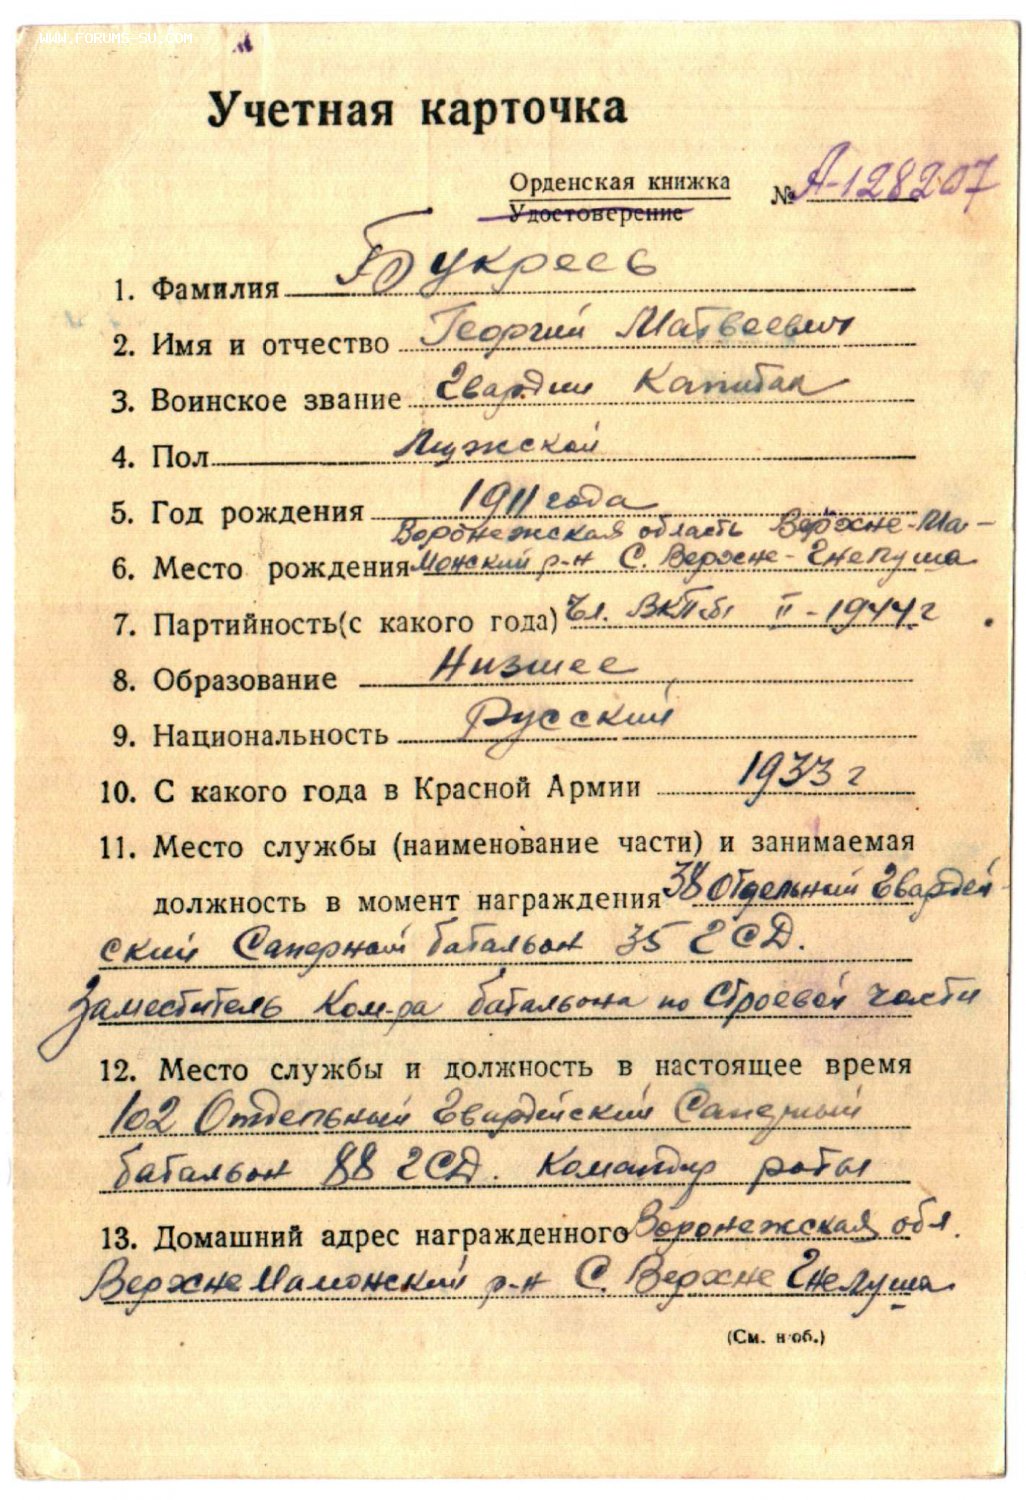 WWW.FORUMS-SU.COM
Учетная карточка
Орденская книжка
Удостоверение
№ А-128207
1. Фамилия Букреев
2. Имя и отчество Георгий Матвеевич
3. Воинское звание Гвардии Капитан
4. Пол Мужской
5. Год рождения 1911 года
Воронежская область Верхне-Ма-
6. Место рождения Монский р-н С. Верхне-Гнелуша
7. Партийность(с какого года) Чл. ВКПб II-1944г
8. Образование Низшее
9. Национальность Русский
10. С какого года в Красной Армии 1933 г
11. Место службы (наименование части) и занимаемая
должность в момент награждения 38 Отдельный Гвардей-
ский Саперный батальон 35 ГСД.
Заместитель Ком-ра батальона по Строевой части
12. Место службы и должность в настоящее время
102 Отдельный Гвардейский Саперный
батальон 88 ГСД. Командир роты
13. Домашний адрес награжденного Воронежская обл.
Верхне Мамонский р-н С. Верхне Гнелуша
(См. н об.)